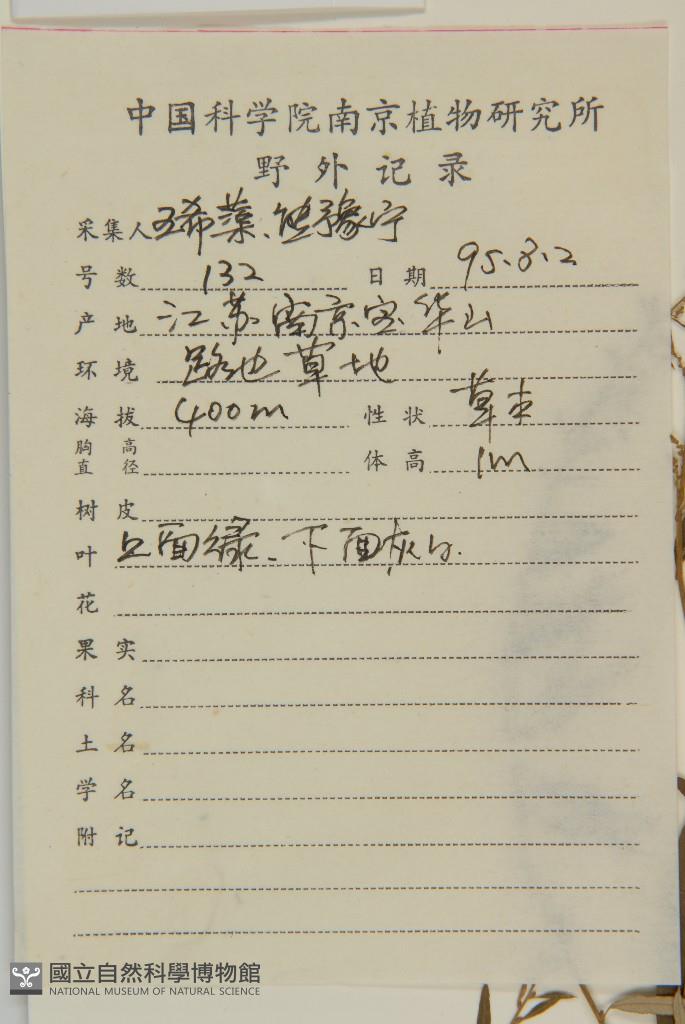 中国科学院南京植物研究所
野外记录
采集人 王希蕖、熊豫宁
号数 132 日期 95.8.2
产地 江苏南京宝华山
环境 路边草地
海拔 400m 性状 草本
胸高直径 体高 1m
树皮
叶 上面绿、下面灰白.
花
果实
科名
土名
学名
附记
國立自然科學博物館
NATIONAL MUSEUM OF NATURAL SCIENCE